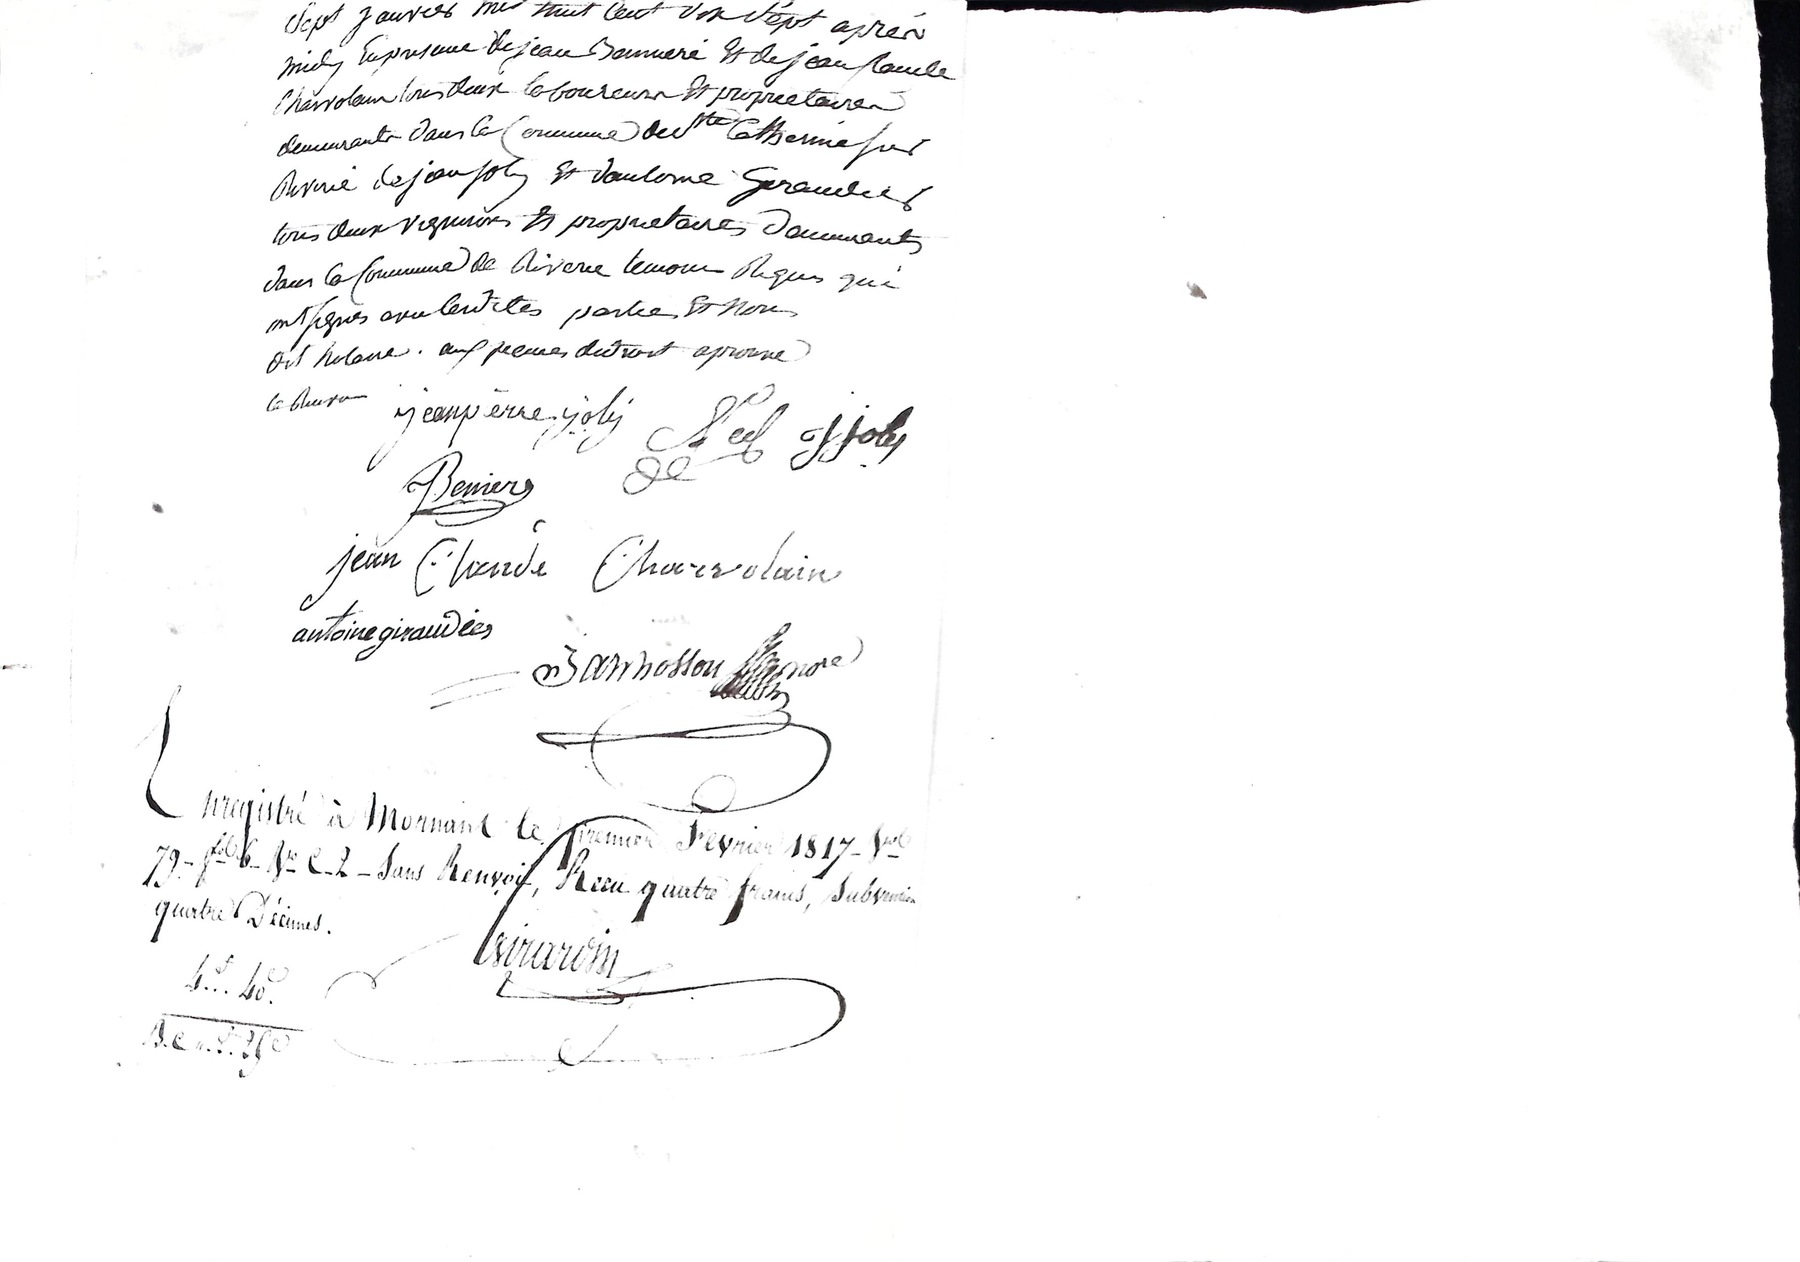 Sept janvier mil huit cent dix sept après
midy En presence de jean Banniere Et de jean Claude
Charvolain tous deux laboureurs Et proprietaires
demeurants dans la Commune de Ste Catherine sur
Riverie de jean joly Et d'antoine Giraudier
tous deux vignerons Et proprietaires demeurants
dans la Commune de Riverie temoins Requis qui
ont signés avec lesdites parties Et Nous
dit Notaire . aprouvé
jeanpierre joly Néel JJoly
Benier
jean Claude Charvolain
antoine giraudier
not re
Enregistré à Mornant le premier Fevrier 1817 - Vol
79 - fol 6 - Ro C. 2 - Sans Renvoi, Reçu quatre francs, Subvention
quatre Décimes.
Girardin
4 f. 40 c.